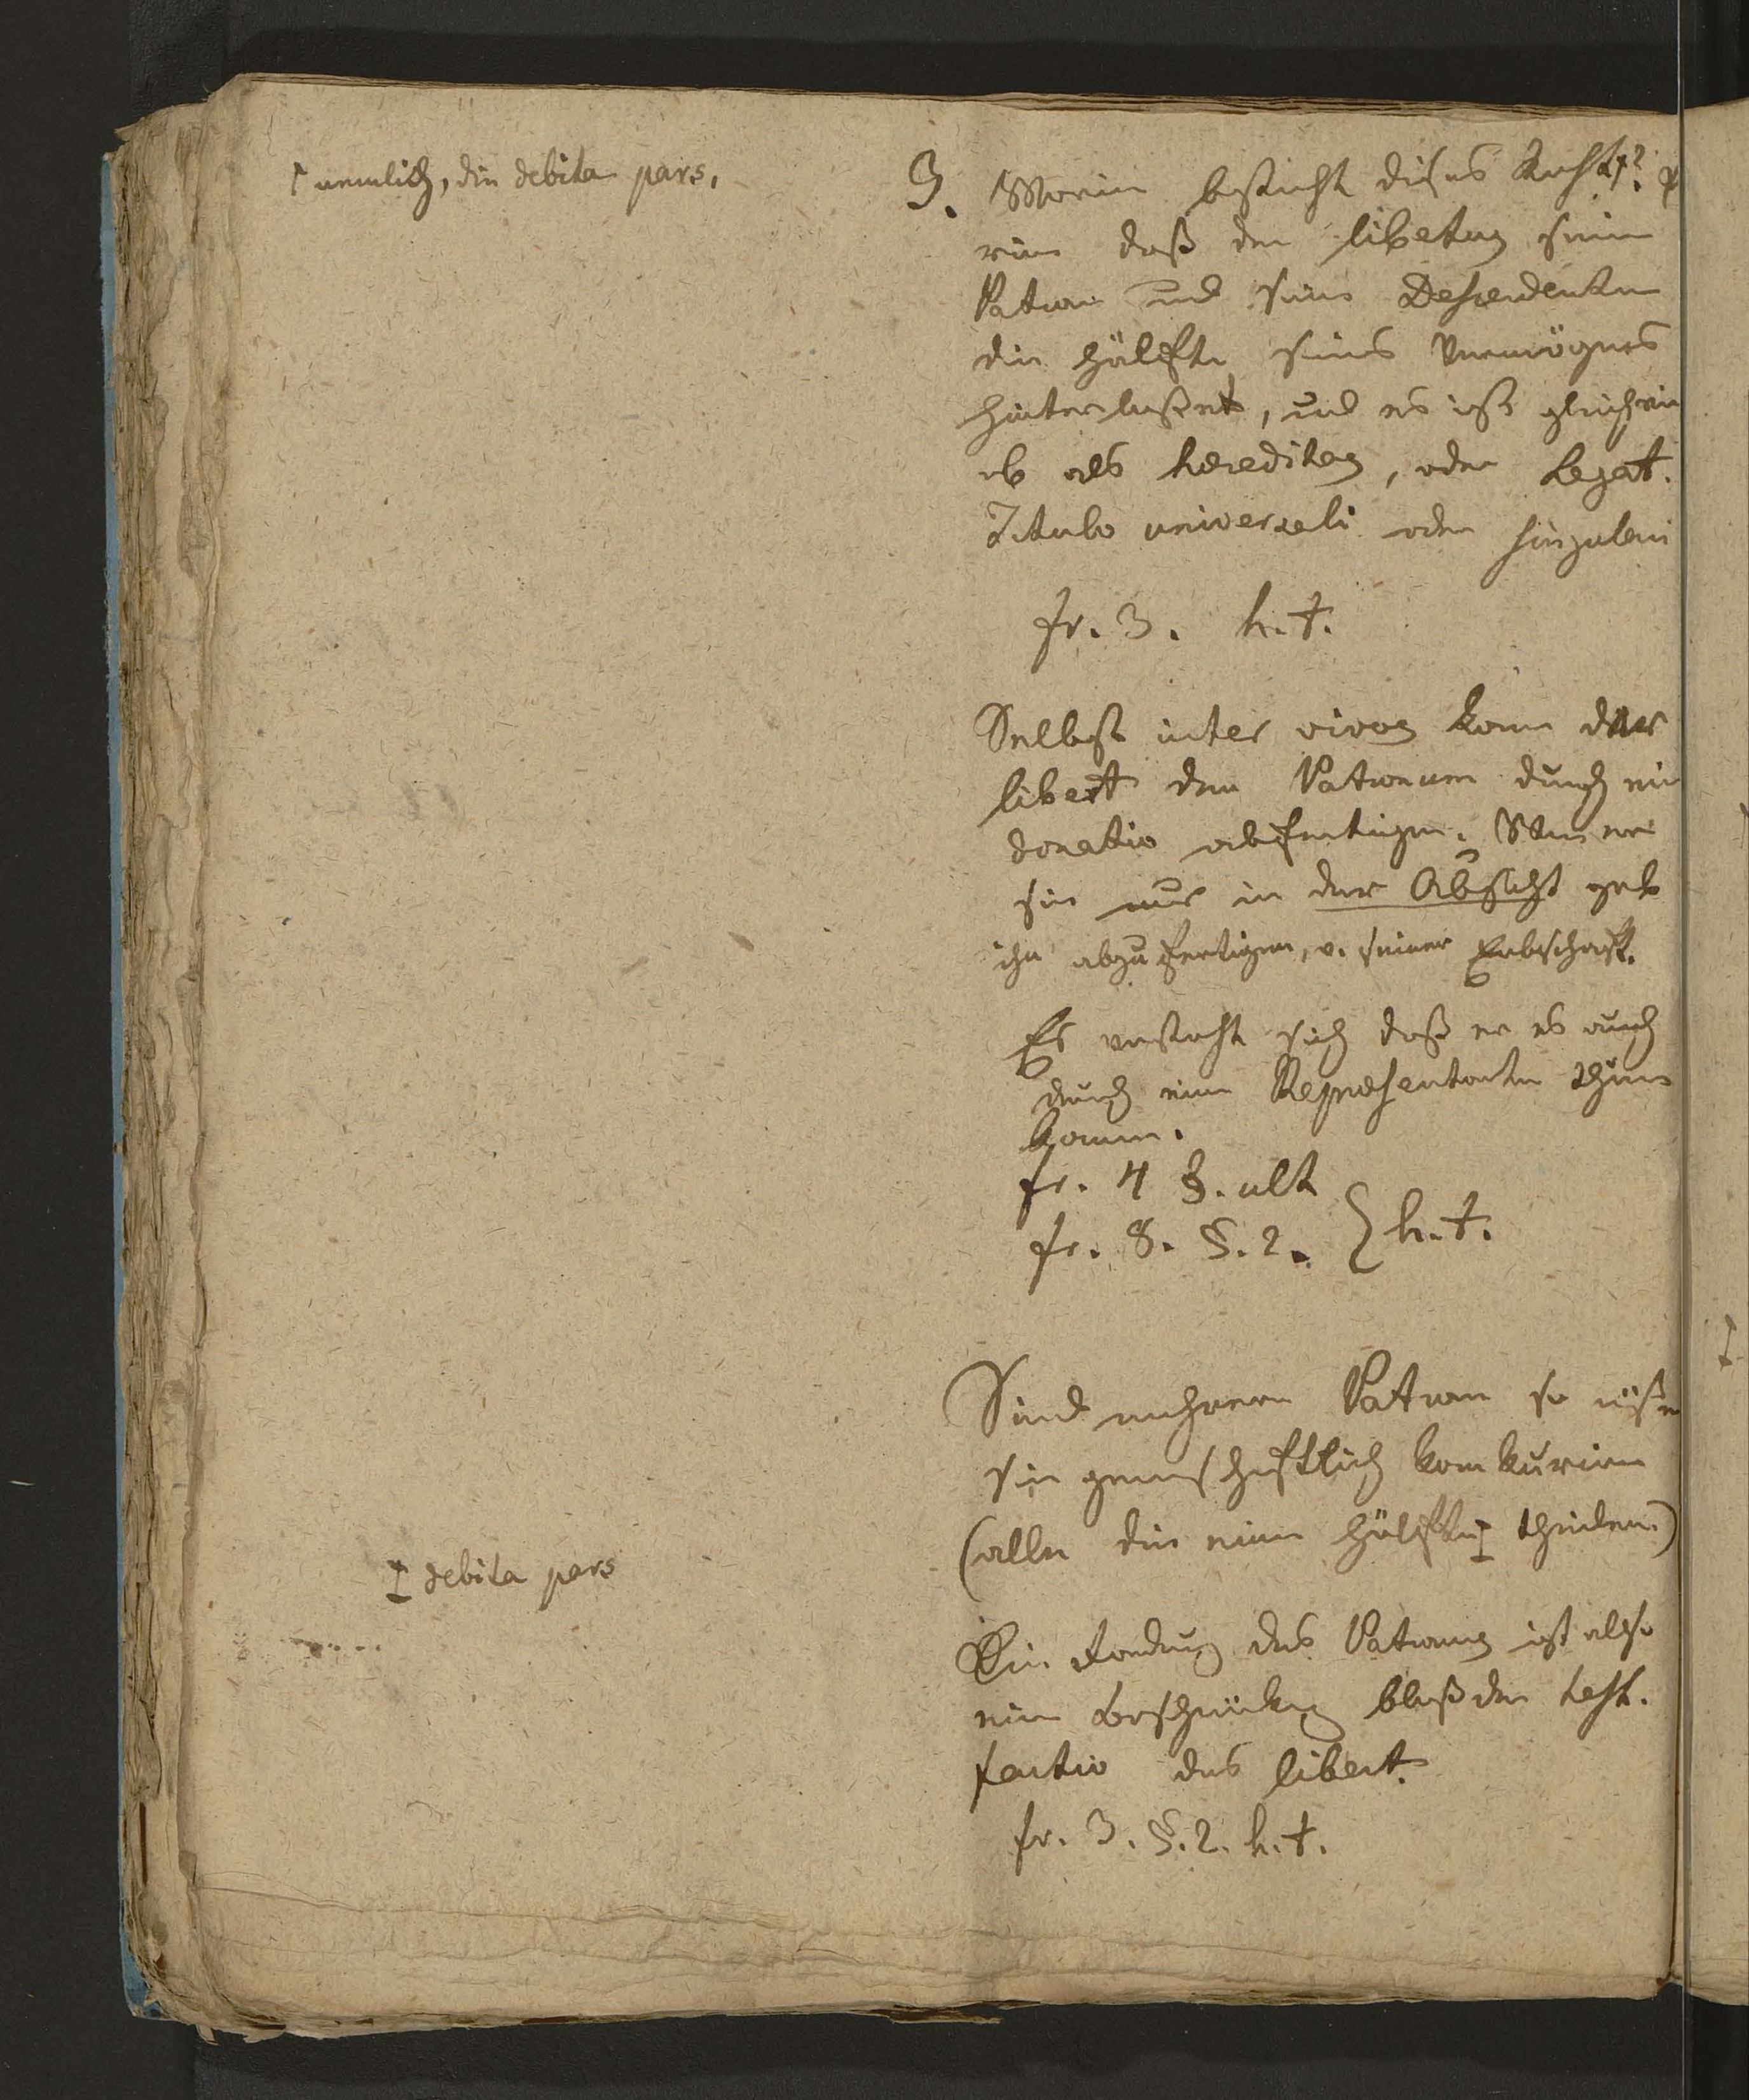 † nemlich, die debita pars.
3. Worin besteht dieses Recht†? d
rin daß der libertus seine
Patron und seine Descendenten
die Hälfte seines Vermögens
hinterlaßet, und es ist gleich ein
ob als hereditas, oder Legat.
Titulo universali oder singulari
fr. 3. h. t.
Selbst inter vivos kann der
libert den Patronum durch ein
donatio abfertigen. Wenn er
sie nur in der Absicht geb
ihn abzufertigen, v. seiner Erbschaft.
Es versteht sich daß er es auch
durch einen Repræsentanten thun
kann.
fr. 4 §. ult
fr. 8. §. 2. } h. t.
Sind mehrere Patrone so müße
sie gemeinschaftlich konkuriren
(alle die eine Hälfte ‡ theilen)
‡ debita pars
Die Forderung des Patronus ist also
eine Beschränkung bloß der test.
factio des libert.
fr. 3. §. 2. h. t.